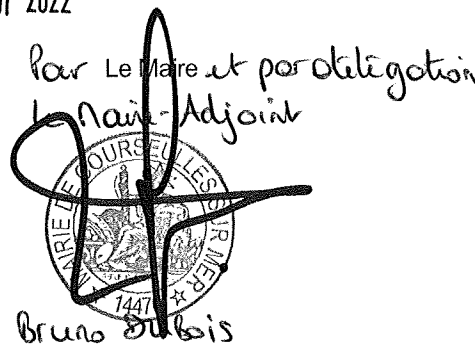 2022
Pour Le Maire et par délégation
Le Maire-Adjoint
MAIRIE DE COURSEULLES SUR MER
1447
Bruno Dubois